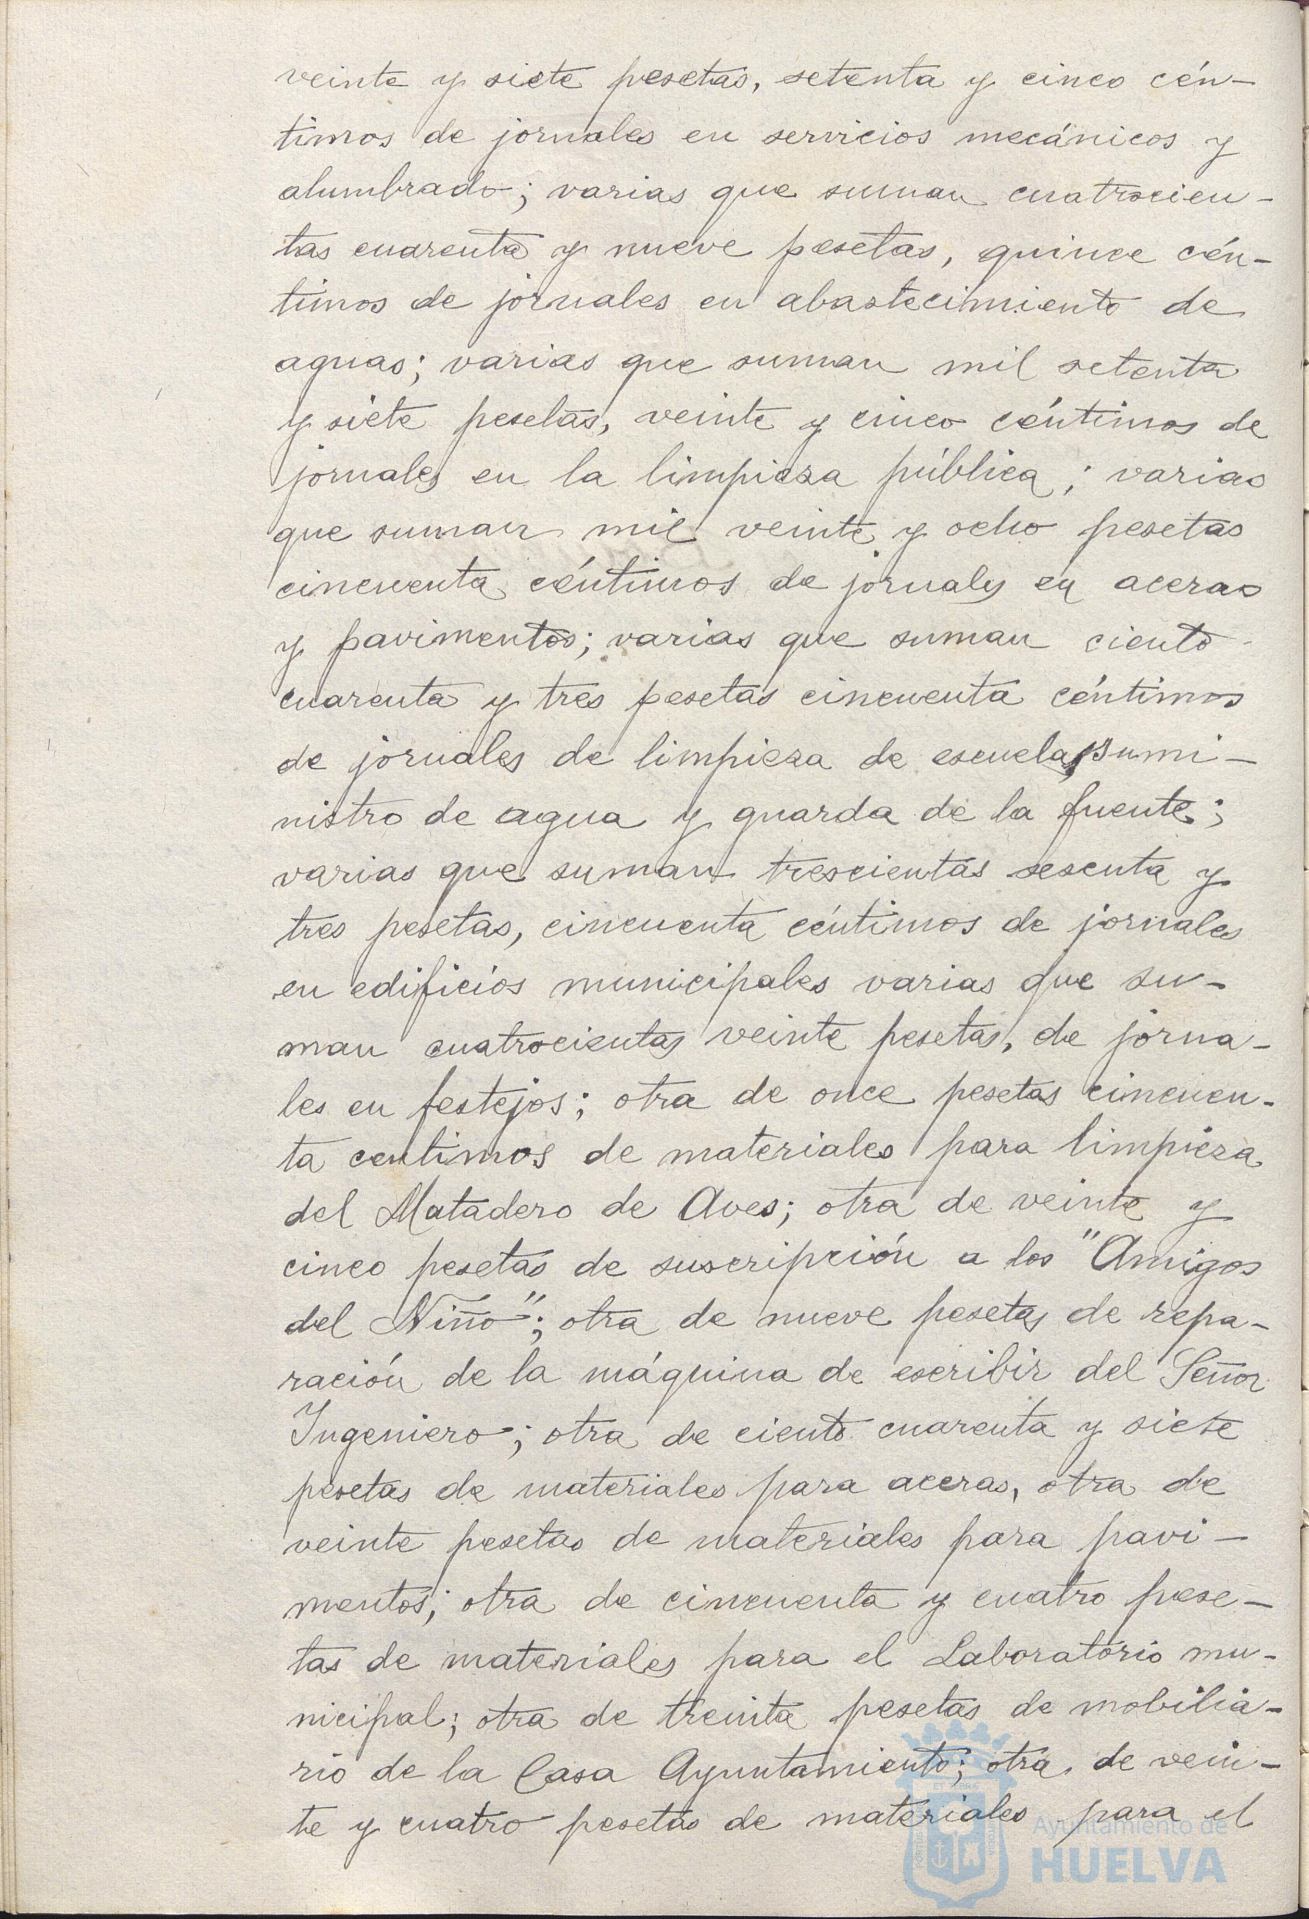 veinte y siete pesetas, setenta y cinco cén-
timos de jornales en servicios mecánicos y
alumbrado; varias que suman cuatrocien-
tas cuarenta y nueve pesetas, quince cén-
timos de jornales en abastecimiento de
aguas; varias que suman mil setenta
y siete pesetas, veinte y cinco céntimos de
jornales en la limpieza pública; varias
que suman mil veinte y ocho pesetas
cincuenta céntimos de jornales en aceras
y pavimentos; varias que suman ciento
cuarenta y tres pesetas cincuenta céntimos
de jornales de limpieza de escuela, sumi-
nistro de agua y guarda de la fuente;
varias que suman trescientas sesenta y
tres pesetas, cincuenta céntimos de jornales
en edificios municipales varias que su-
man cuatrocientas veinte pesetas, de jorna-
les en festejos; otra de once pesetas cincuen-
ta centimos de materiales para limpieza
del Matadero de Aves; otra de veinte y
cinco pesetas de suscripción a los "Amigos
del Niño"; otra de nueve pesetas de repa-
ración de la máquina de escribir del Señor
Ingeniero; otra de ciento cuarenta y siete
pesetas de materiales para aceras, otra de
veinte pesetas de materiales para pavi-
mentos; otra de cincuenta y cuatro pese-
tas de materiales para el Laboratorio mu-
nicipal; otra de treinta pesetas de mobilia-
rio de la Casa Ayuntamiento; otra de vein-
te y cuatro pesetas de materiales para el
Ayuntamiento de
HUELVA